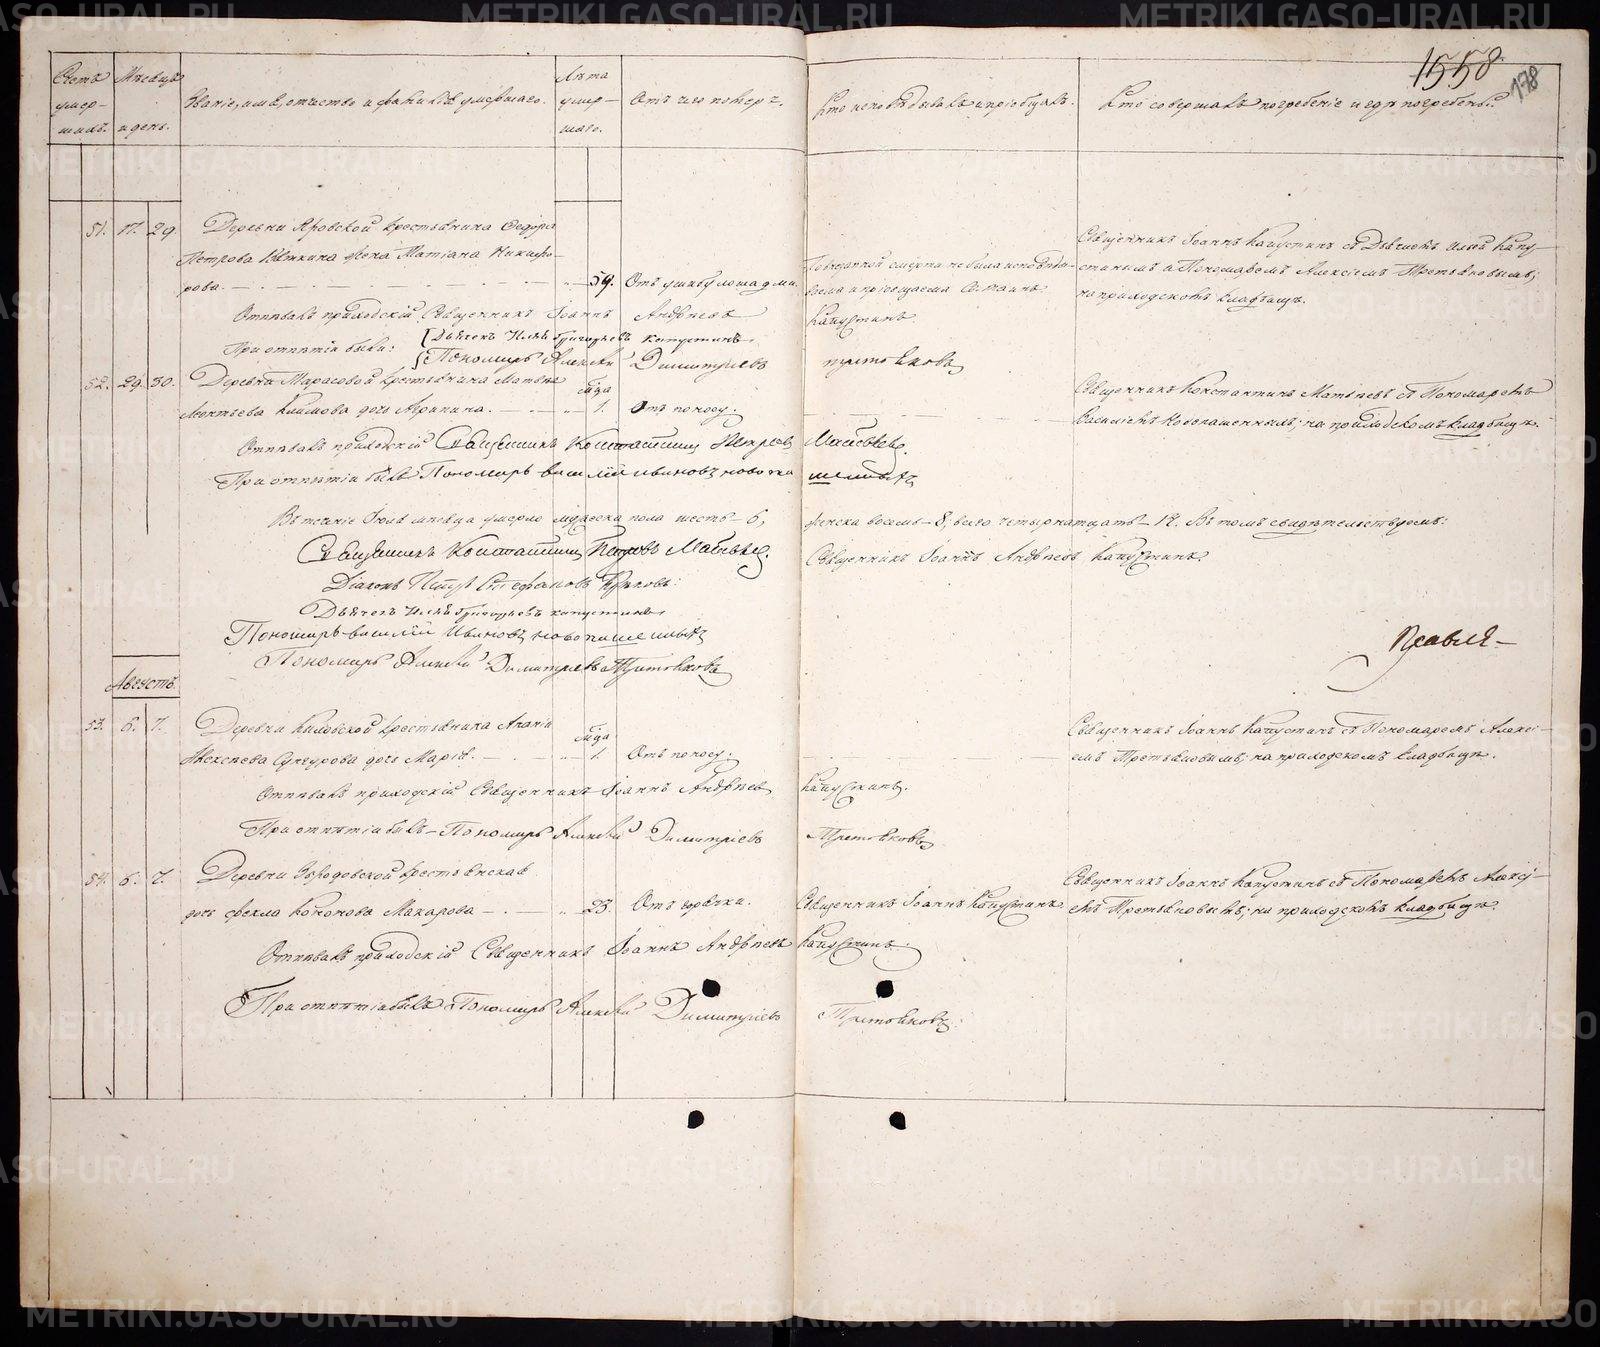 1558
178
Счетъ умер-шихъ.
Мѣсяцъ и день.
Званіе, имя, отчество и фамилія умершаго.
Лѣта умер-шаго.
Отъ чего померъ.
Кто исповѣдывалъ и пріобщалъ.
Кто совершалъ погребеніе и гдѣ погребены.
51. 17. 29.
Деревни Яровской крестьянина Ѳедора
Петрова жена Матіана Никифо-
рова. 59. Отъ ушибу лошадьми.
смерти не была исповѣды-
ваема и пріобщаема Св. таинъ.
Священникъ Іоаннъ Капустинъ съ Дьячкомъ Иліей Капу-
стинымъ и Пономаремъ Алексіемъ Третьяковымъ;
на приходскомъ кладбищѣ.
Отпѣвалъ приходскій Священникъ Іоаннъ Андреевъ Капустинъ.
При отпѣтіи были: Дьячекъ Илья Григорьевъ Капустинъ.
Пономарь Алексѣй Димитріевъ Третьяковъ
52. 29. 30.
Деревни Тарасовой крестьянина Матвѣя
Леонтьева Климова дочь Агрипина. мѣсяца 1. Отъ поносу.
Священникъ Константинъ Матвѣевъ съ Пономаремъ
Василіемъ Новопашеннымъ; на приходскомъ кладбищѣ.
Отпѣвалъ приходскій Священникъ Константинъ Петровъ Матвѣевъ.
При отпѣтіи былъ Пономарь Василій Ивановъ Новопашенныхъ
Въ теченіе Іюля мѣсяца умерло мужеска пола шесть – 6, женска восемь – 8, всего четырнатцать – 14. Въ томъ свидѣтельствуемъ:
Священникъ Константинъ Петровъ Матвѣевъ.
Священникъ Іоаннъ Андреевъ Капустинъ.
Діаконъ Петръ Стефановъ
Дьячекъ Илья Григорьевъ Капустинъ
Пономарь Василій Ивановъ Новопашенныхъ
Пономарь Алексѣй Димитріевъ Третьяковъ
Августъ
53. 6. 7.
Деревни крестьянина Ананіи
Алексѣева Сунгурова дочь Марія. мѣсяца 1. Отъ поносу.
Священникъ Іоаннъ Капустинъ съ Пономаремъ Алексі-
емъ Третьяковымъ; на приходскомъ кладбищѣ.
Отпѣвалъ приходскій Священникъ Іоаннъ Андреевъ Капустинъ.
При отпѣтіи былъ – Пономарь Алексѣй Димитріевъ Третьяковъ
54. 6. 7.
Деревни крестьянская
дочь Ѳекла Кононова Макарова 23. Отъ горячки.
Священникъ Іоаннъ Капустинъ.
Священникъ Іоаннъ Капустинъ съ Пономаремъ Алексі-
емъ Третьяковымъ; на приходскомъ кладбищѣ.
Отпѣвалъ приходскій Священникъ Іоаннъ Андреевъ Капустинъ.
При отпѣтіи былъ Пономарь Алексѣй Димитріевъ Третьяковъ.
METRIKI.GASO-URAL.RU